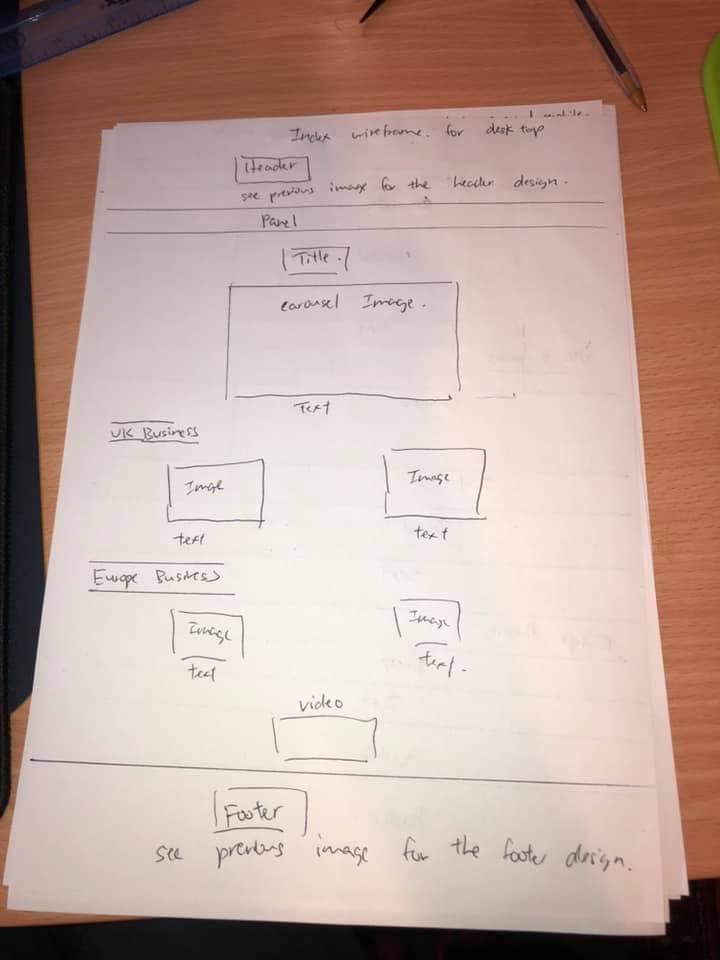 Index wireframe. for desk top
Header
see previous image for the header design.
Panel
Title.
carousel Image.
Text
UK Business
Image Image
text text
Europe Business
Image Image
text text.
video
Footer
see previous image for the footer design.